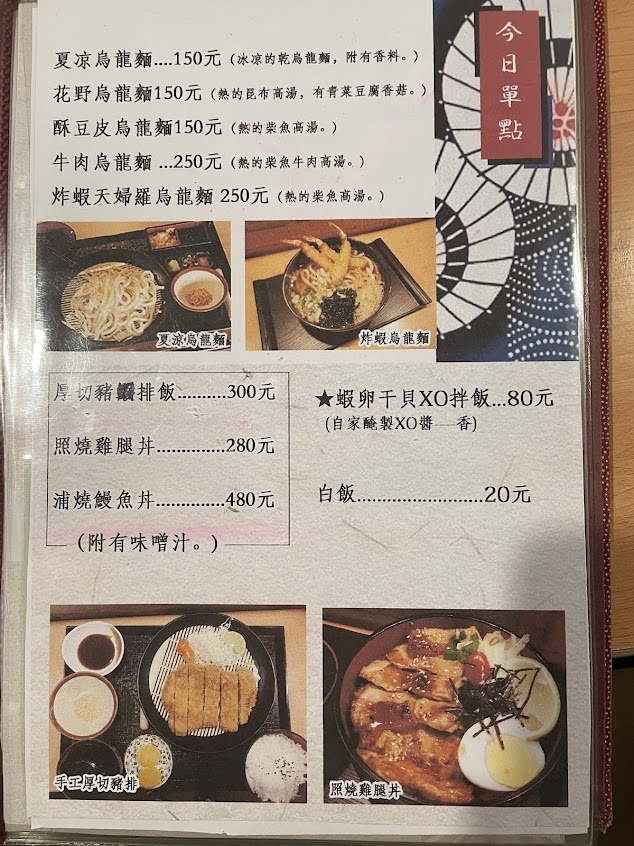 今日單點
夏凉烏龍麵....150元 (冰凉的乾烏龍麵，附有香料。)
花野烏龍麵150元 (熱的昆布高湯，有青菜豆腐香菇。)
酥豆皮烏龍麵150元 (熱的柴魚高湯。)
牛肉烏龍麵 ...250元 (熱的柴魚牛肉高湯。)
炸蝦天婦羅烏龍麵 250元 (熱的柴魚高湯。)
夏凉烏龍麵
炸蝦烏龍麵
厚切豬排飯..........300元
照燒雞腿丼..............280元
浦燒鰻魚丼..............480元
(附有味噌汁。)
★蝦卵干貝XO拌飯...80元
(自家醃製XO醬 香)
白飯.........................20元
手工厚切豬排
照燒雞腿丼